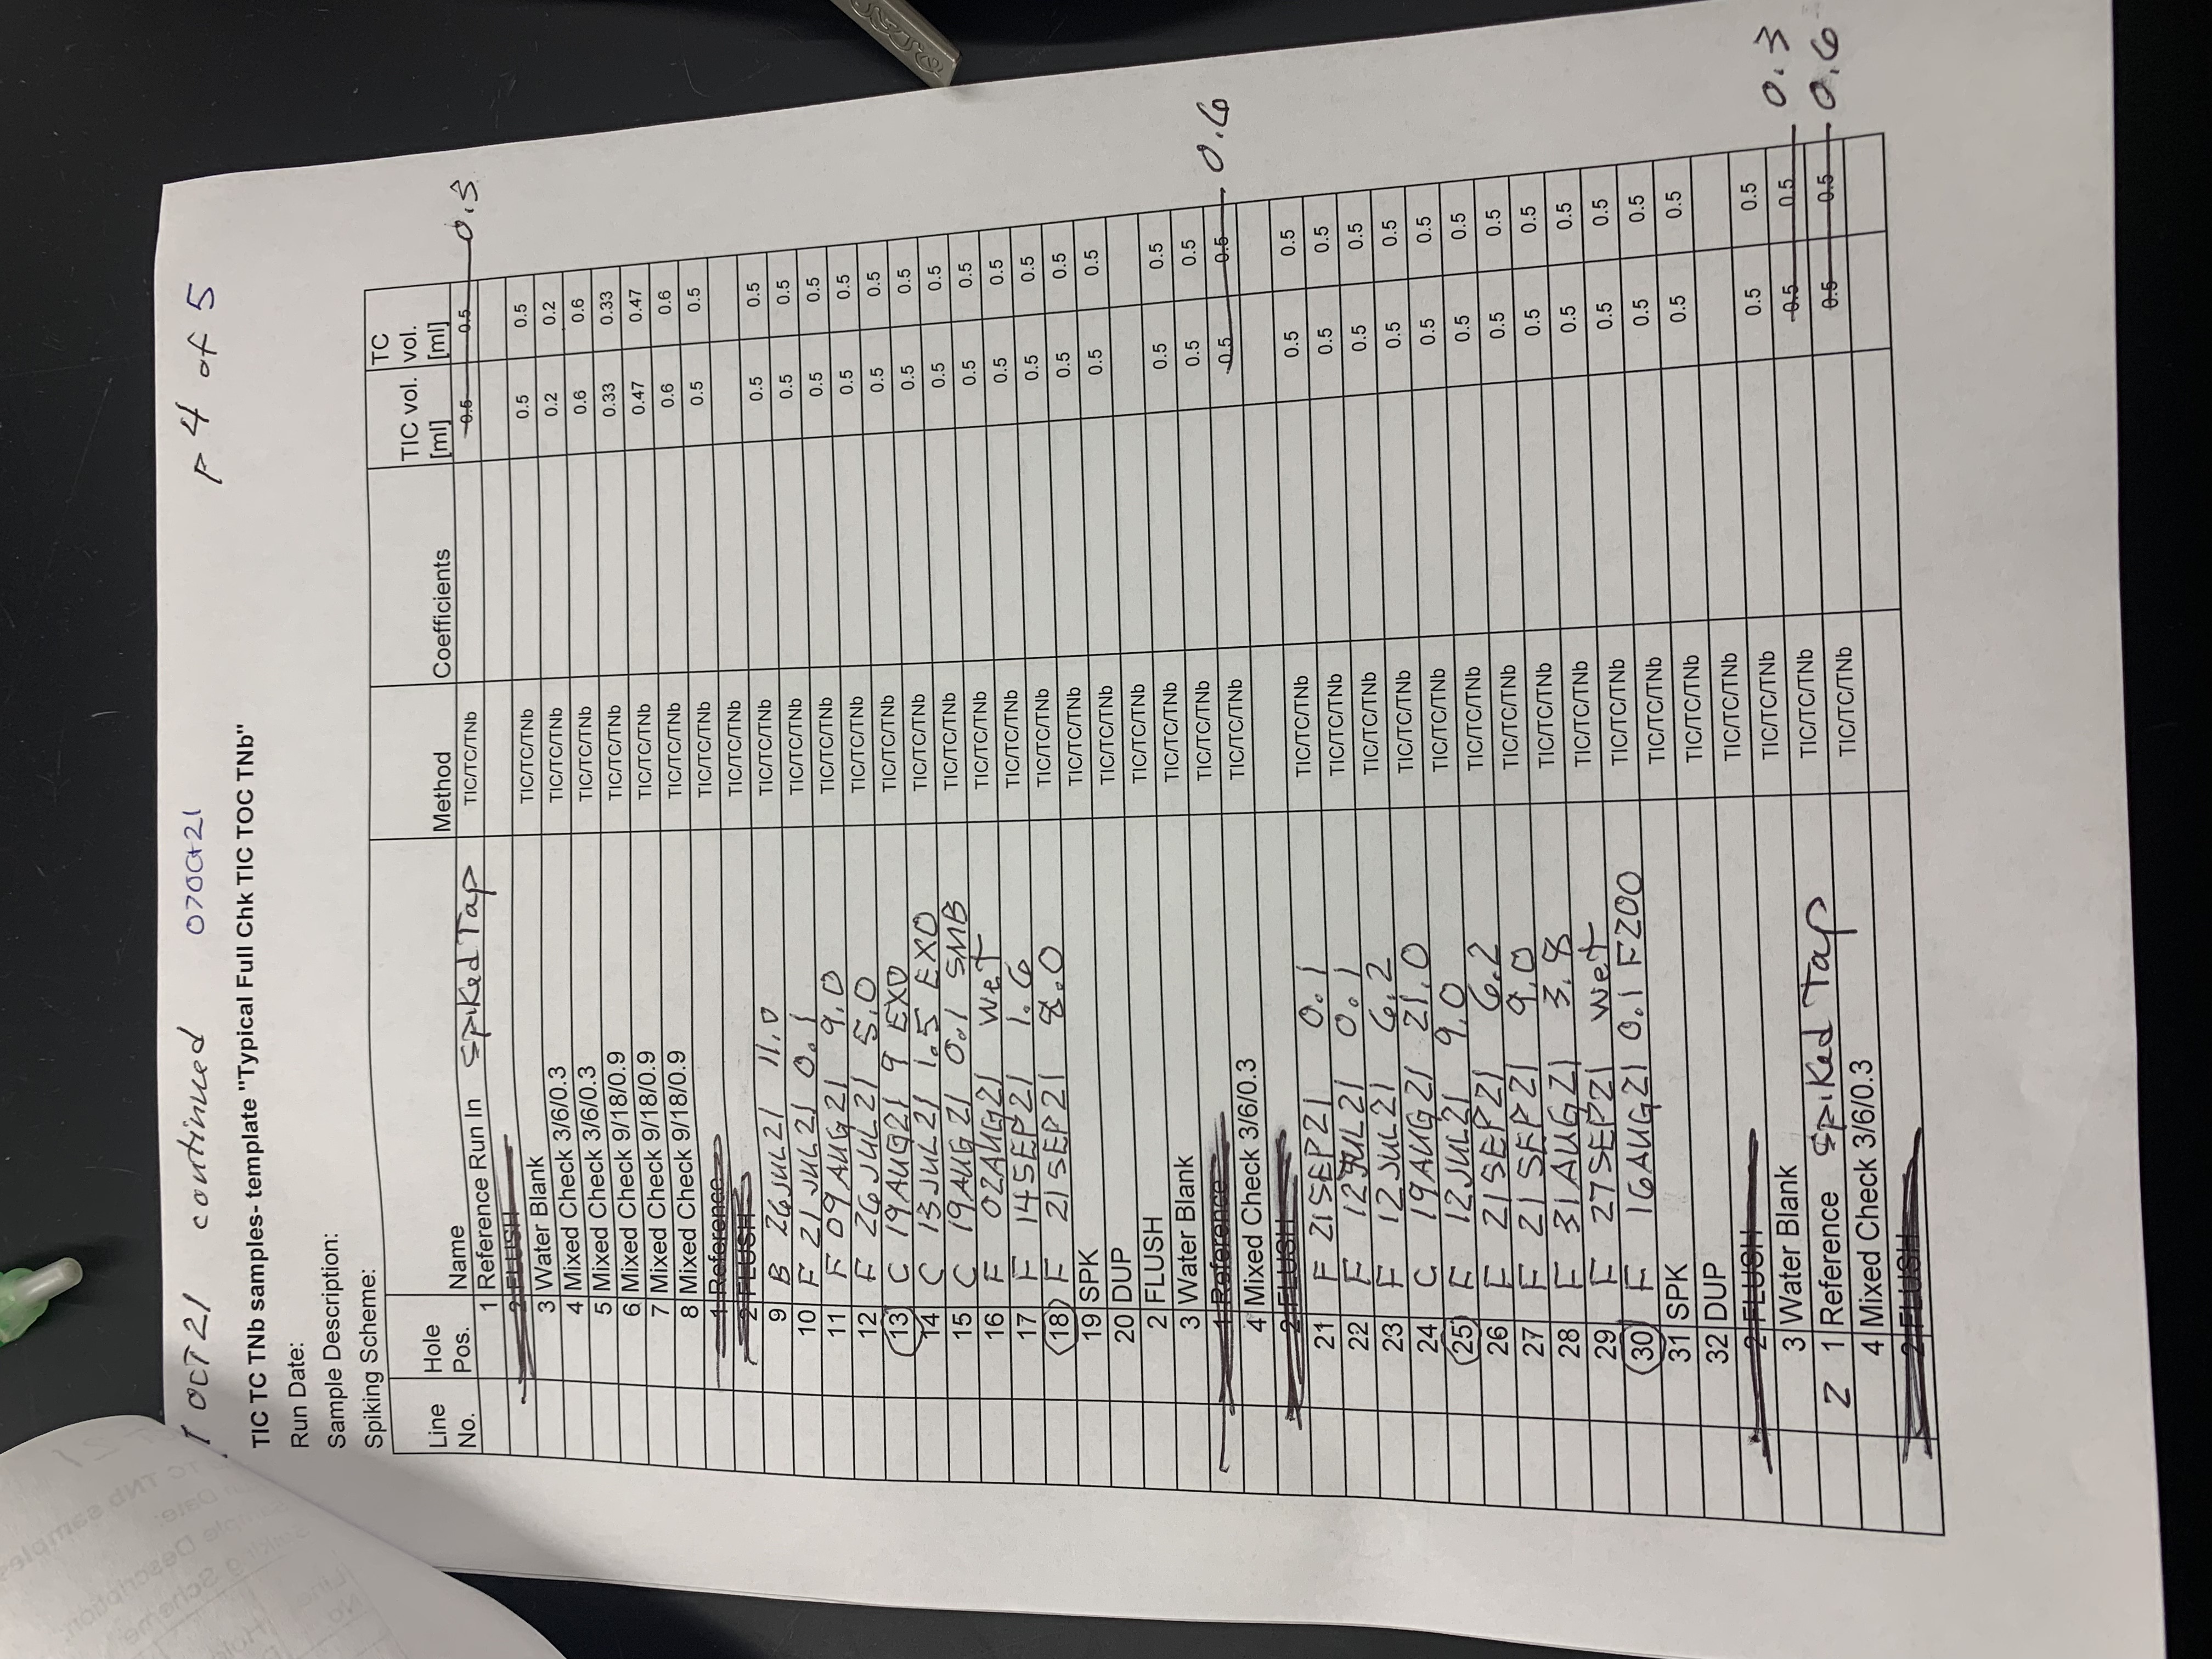 1 OCT 21 continued 07Oct21 p 4 of 5
TIC TC TNb samples- template "Typical Full Chk TIC TOC TNb"
Run Date:
Sample Description:
Spiking Scheme:
Line No. Hole Pos. Name Method Coefficients TIC vol. [ml] TC vol. [ml]
1 Reference Run In Spiked Tap TIC/TC/TNb 0.5 0.5 0.3
2 FLUSH
3 Water Blank TIC/TC/TNb 0.5 0.5
4 Mixed Check 3/6/0.3 TIC/TC/TNb 0.2 0.2
5 Mixed Check 3/6/0.3 TIC/TC/TNb 0.6 0.6
6 Mixed Check 9/18/0.9 TIC/TC/TNb 0.33 0.33
7 Mixed Check 9/18/0.9 TIC/TC/TNb 0.47 0.47
8 Mixed Check 9/18/0.9 TIC/TC/TNb 0.6 0.6
1 Reference TIC/TC/TNb 0.5 0.5
2 FLUSH TIC/TC/TNb
9 B 26JUL21 11.0 TIC/TC/TNb 0.5 0.5
10 F 21JUL21 0.1 TIC/TC/TNb 0.5 0.5
11 F 09AUG21 9.0 TIC/TC/TNb 0.5 0.5
12 F 26JUL21 5.0 TIC/TC/TNb 0.5 0.5
13 C 19AUG21 9 EXO TIC/TC/TNb 0.5 0.5
14 C 13JUL21 1.5 EXO TIC/TC/TNb 0.5 0.5
15 C 19AUG21 0.1 SMB TIC/TC/TNb 0.5 0.5
16 F 02AUG21 wet TIC/TC/TNb 0.5 0.5
17 F 14SEP21 1.6 TIC/TC/TNb 0.5 0.5
18 F 21SEP21 8.0 TIC/TC/TNb 0.5 0.5
19 SPK TIC/TC/TNb 0.5 0.5
20 DUP TIC/TC/TNb 0.5 0.5
2 FLUSH TIC/TC/TNb
3 Water Blank TIC/TC/TNb 0.5 0.5
1 Reference TIC/TC/TNb 0.5 0.5
4 Mixed Check 3/6/0.3 TIC/TC/TNb 0.5 0.5 0.6
2 FLUSH
21 F 21SEP21 0.1 TIC/TC/TNb 0.5 0.5
22 F 12JUL21 0.1 TIC/TC/TNb 0.5 0.5
23 F 12JUL21 6.2 TIC/TC/TNb 0.5 0.5
24 C 19AUG21 21.0 TIC/TC/TNb 0.5 0.5
25 F 12JUL21 9.0 TIC/TC/TNb 0.5 0.5
26 F 21SEP21 6.2 TIC/TC/TNb 0.5 0.5
27 F 21SEP21 9.0 TIC/TC/TNb 0.5 0.5
28 F 31AUG21 3.8 TIC/TC/TNb 0.5 0.5
29 F 27SEP21 wet TIC/TC/TNb 0.5 0.5
30 F 16AUG21 0.1 F200 TIC/TC/TNb 0.5 0.5
31 SPK TIC/TC/TNb 0.5 0.5
32 DUP TIC/TC/TNb 0.5 0.5
2 FLUSH TIC/TC/TNb
3 Water Blank TIC/TC/TNb 0.5 0.5
2 1 Reference Spiked Tap TIC/TC/TNb 0.5 0.5 0.3
4 Mixed Check 3/6/0.3 TIC/TC/TNb 0.5 0.5 0.6
2 FLUSH